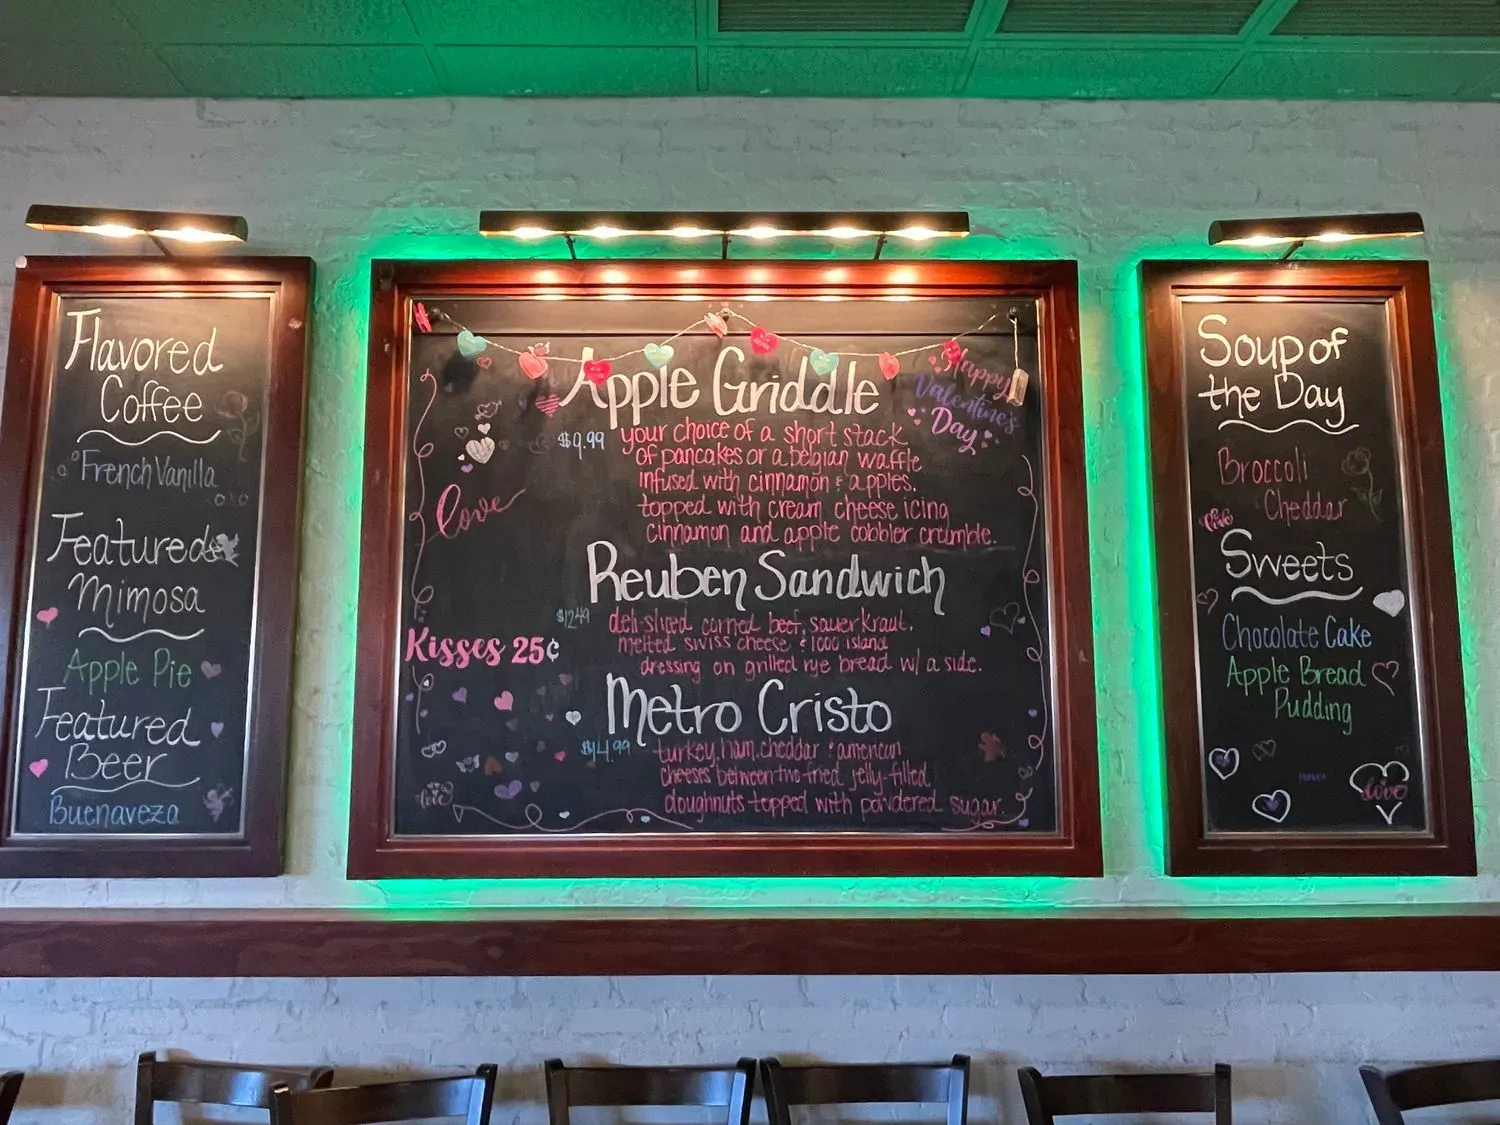 Flavored
Coffee
French Vanilla
Featured
Mimosa
Apple Pie
Featured
Beer
Buenaveza
Happy
Valentine's
Day
Apple Griddle
$9.99 your choice of a short stack
of pancakes or a belgian waffle
infused with cinnamon & apples.
topped with cream cheese icing
cinnamon and apple cobbler crumble.
Love
Reuben Sandwich
$12.49 deli-sliced corned beef, sauerkraut,
melted swiss cheese & 1000 island
dressing on grilled rye bread w/ a side.
Kisses 25¢
Metro Cristo
$14.99 turkey, ham, cheddar & american
cheeses between two fried jelly-filled
doughnuts topped with powdered sugar.
Love
Soup of
the Day
Broccoli
Cheddar
Sweets
Chocolate Cake
Apple Bread
Pudding
Love